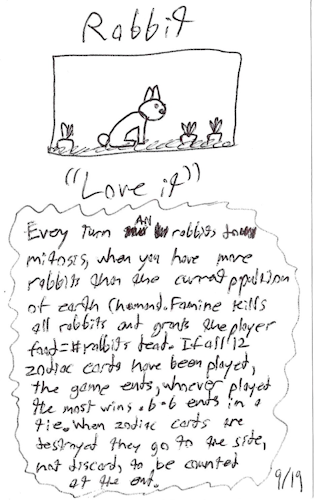 Rabbit
"Love it"
Every turn AN rabbits
mitosis, when you have more
rabbits than the current population
of earth (human). Famine kills
all rabbits and grants the player
food = # rabbits dead. If all 12
zodiac cards have been played,
the game ends, whoever played
the most wins. 6-6 ends in a
tie. When zodiac cards are
destroyed they go to the side,
not discard, to be counted
at the end.
9/19